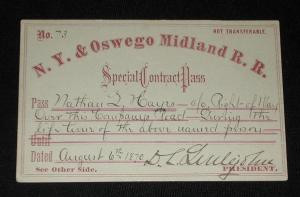 No. 73 NOT TRANSFERABLE.
N. Y. & Oswego Midland R. R.
Special Contract Pass
Pass Nathan L. Hayes - o/o Right of Way
Over this Companys Road - During the
life time of the above named person
Until
Dated August 6th 1870 D. C. Littlejohn
See Other Side. PRESIDENT.